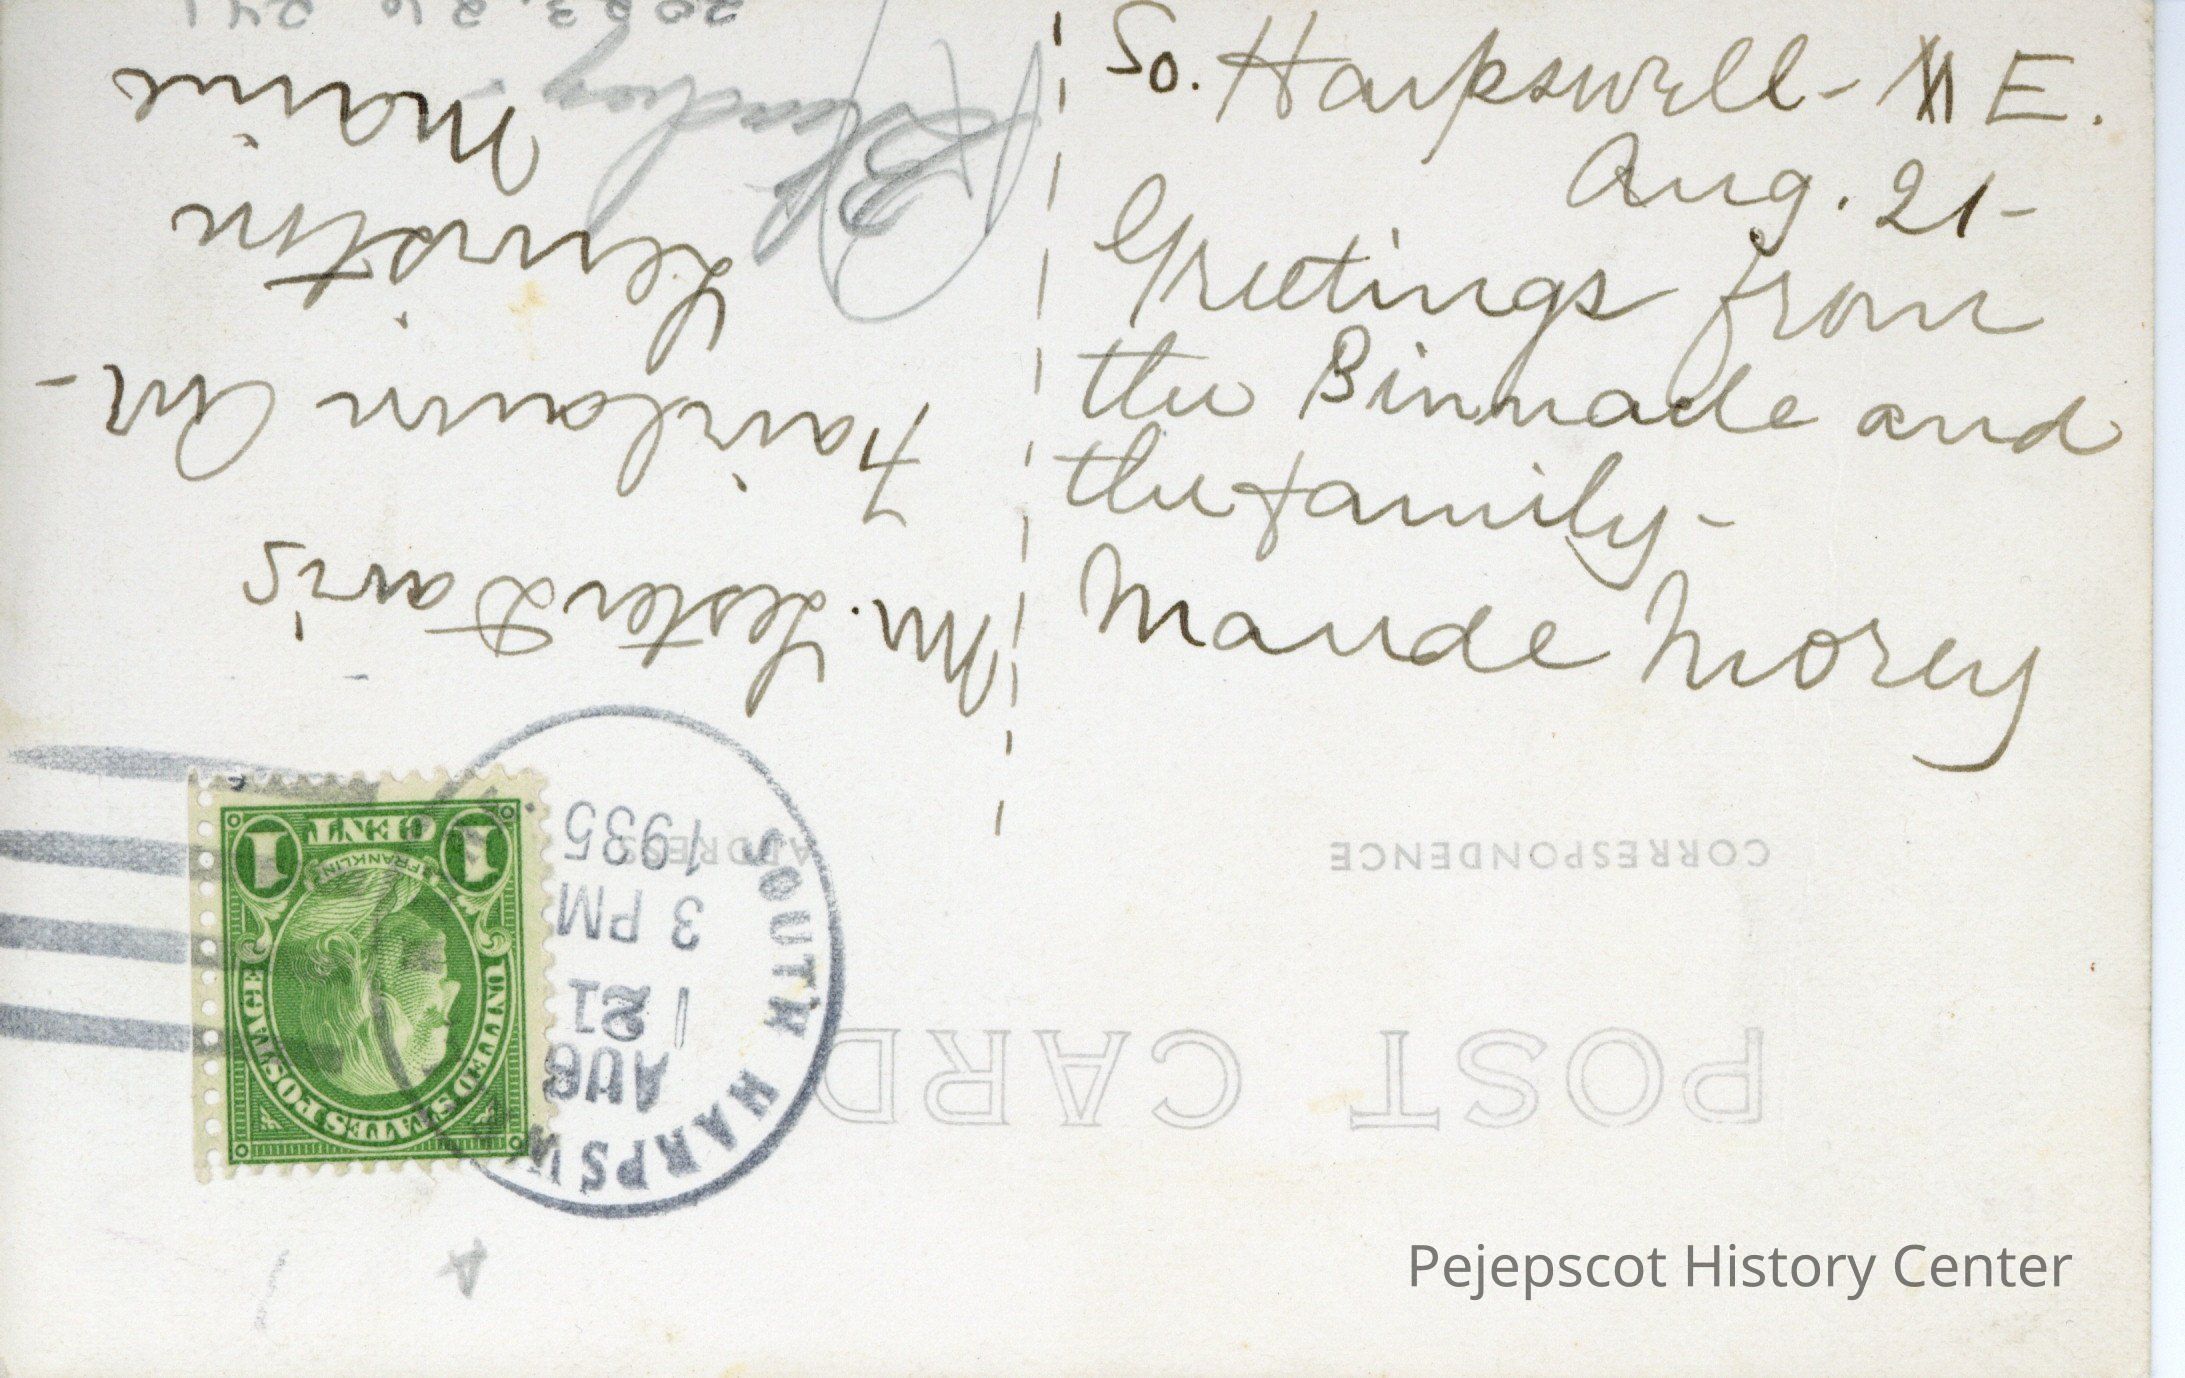 So. Harpswell - ME.
Aug. 21-
Greetings from
the Binnacle and
the family-
Maude Morey
Mr. Lester Davis
Fairlawn Ave-
Lewiston
Maine
POST CARD
CORRESPONDENCE
ADDRESS
SOUTH HARPSW
AUG
21
3 PM
1935
UNITED STATES POSTAGE
FRANKLIN
1 CENT 1
2023.26.241
Pejepscot History Center